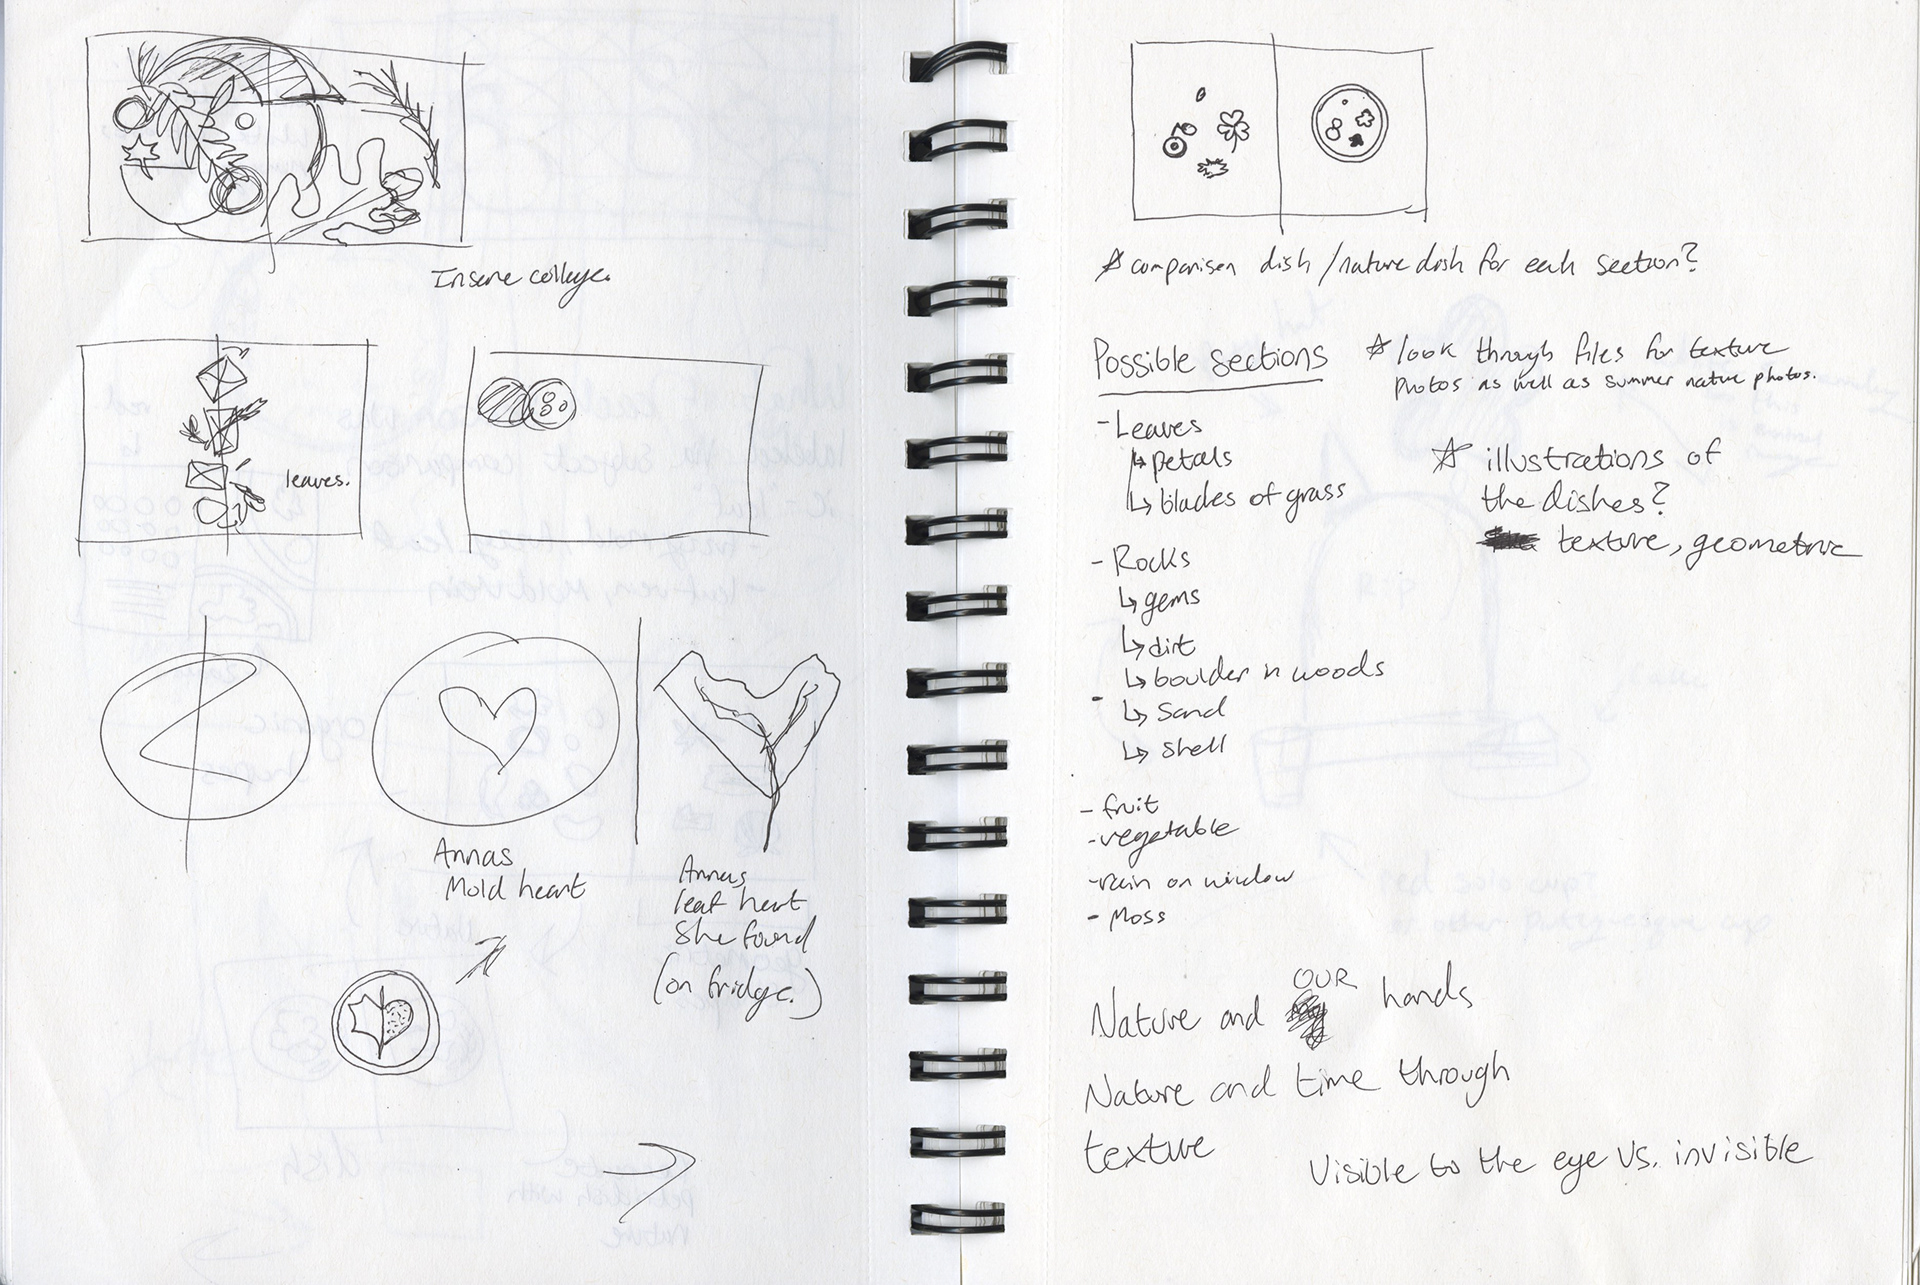 Insane collage.
leaves.
Annas
Mold heart
Annas
leaf heart
She found
(on fridge.)
☆ comparison dish / nature dish for each section?
Possible sections
☆ look through files for texture
photos as well as summer native photos.
- Leaves
↳ petals
↳ blades of grass
☆ illustrations of
the dishes?
texture, geometric
- Rocks
↳ gems
↳ dirt
↳ boulder in woods
↳ Sand
↳ shell
- fruit
- vegetable
- rain on window
- Moss
Nature and OUR hands
Nature and time through
texture
Visible to the eye vs. invisible